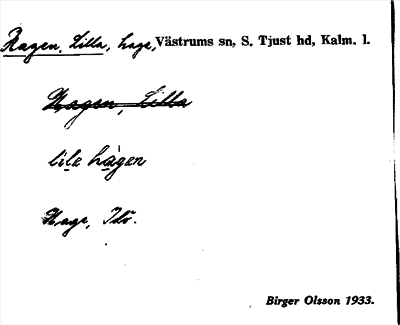 Hagen, Lilla, hage, Västrums sn, S. Tjust hd, Kalm. l.
Hagen, Lilla
lile hàgen
Hage, Tbö.
Birger Olsson 1933.